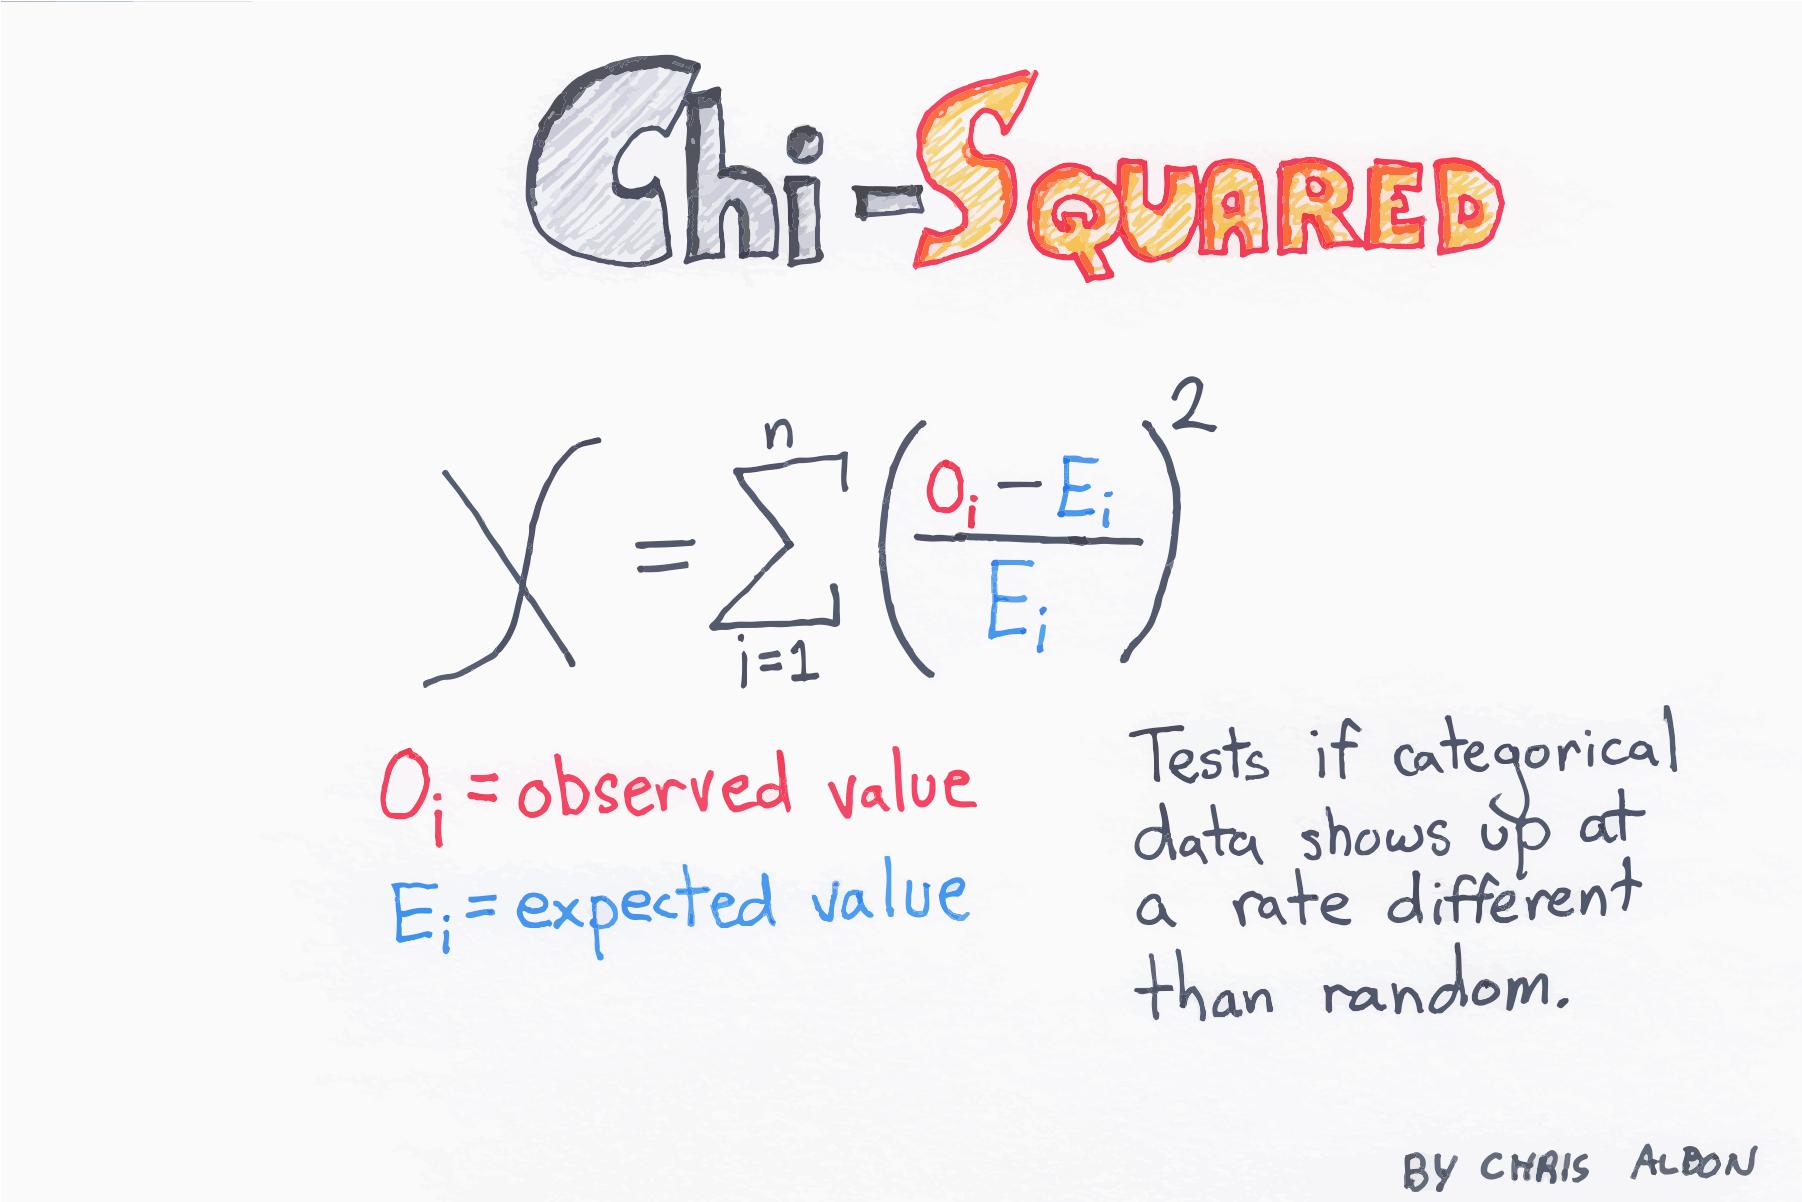 Chi-SQUARED
χ = Σ_{i=1}^{n} ((O_i − E_i) / E_i)^2
O_i = observed value
E_i = expected value
Tests if categorical
data shows up at
a rate different
than random.
BY CHRIS ALBON